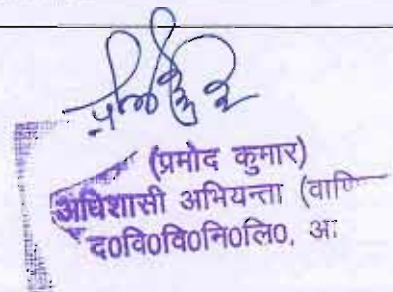 (प्रमोद कुमार)
अधिशासी अभियन्ता (वाणि
द०वि०वि०नि०लि०, आ